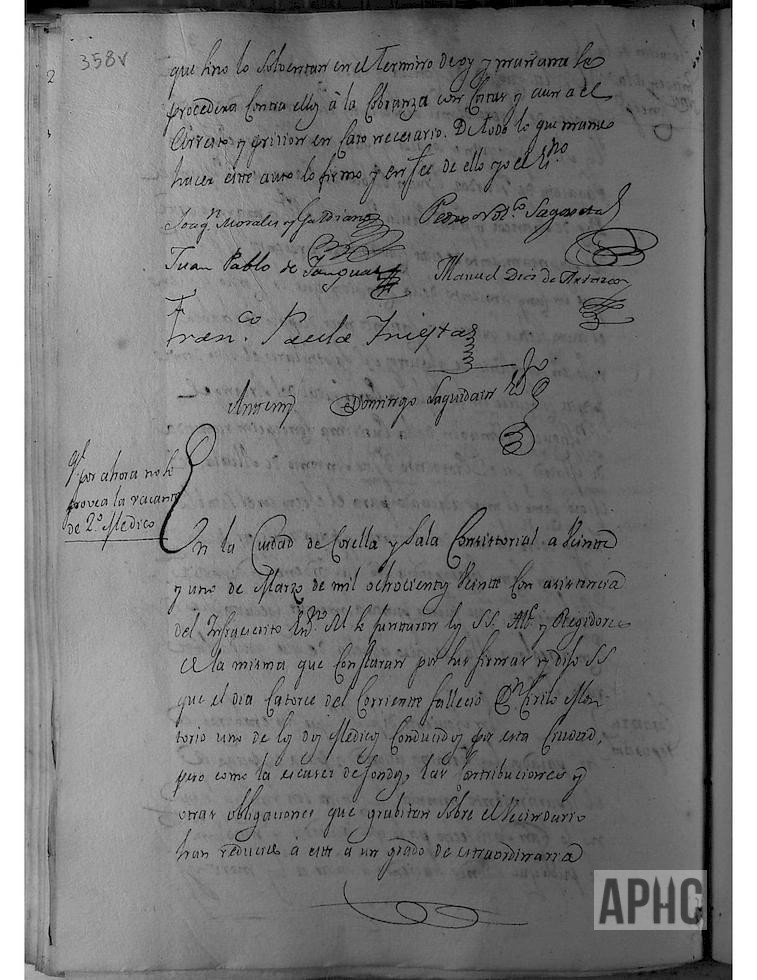 358v
que sino lo solventan en el termino de oy y mañana se
procedera contra ellos à la Cobranza con Costas y aun a el
Arresto y prision en Caso necesario. De todo lo que mando
hacer este auto lo firmo y en fee de ello yo el Es.no
Joaq.n Morales y Galdiano
Pedro Sagaseta
Juan Pablo de Tanguas
Manuel Dios de
Fran.co Paula Iñigo
Domingo Laguidain
Q.e por ahora no se
provea la vacante
de 2.o Medico
En la Ciudad de Corella y Sala Consistorial a Veinte
y uno de Marzo de mil ochocientos Veinte Con asistencia
del Infraescrito Es.no R.l se juntaron los SS. Alc.e y Regidores
de la misma que Constaran por sus firmas y dijo SS
que el dia Catorce del Corriente fallecio D.n Cirilo Mon
torio uno de los dos Medicos Conducidos por esta Ciudad,
pero como la escasez de fondos, las Contribuciones y
otras obligaciones que grabitan Sobre el Vecindario
han reducido à este a un grado de extraordinaria
APHC